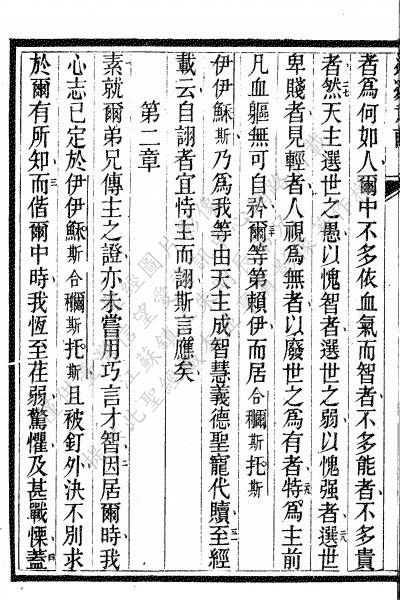 者爲何如人爾中不多依血氣而智者不多能者不多貴
者然天主選世之愚以愧智者選世之弱以愧强者選世
卑賤者見輕者人視爲無者以廢世之爲有者特爲主前
凡血軀無可自矜爾等第賴伊而居合穪斯托斯
伊伊穌斯乃爲我等由天主成智慧義德聖寵代贖至經
載云自詡者宜恃主而詡斯言應矣
第二章
素就爾弟兄傳主之證亦未嘗用巧言才智因居爾時我
心志已定於伊伊穌斯合穪斯托斯且被釘外決不別求
於爾有所知而偕爾中時我恆至荏弱驚懼及甚戰慄蓋